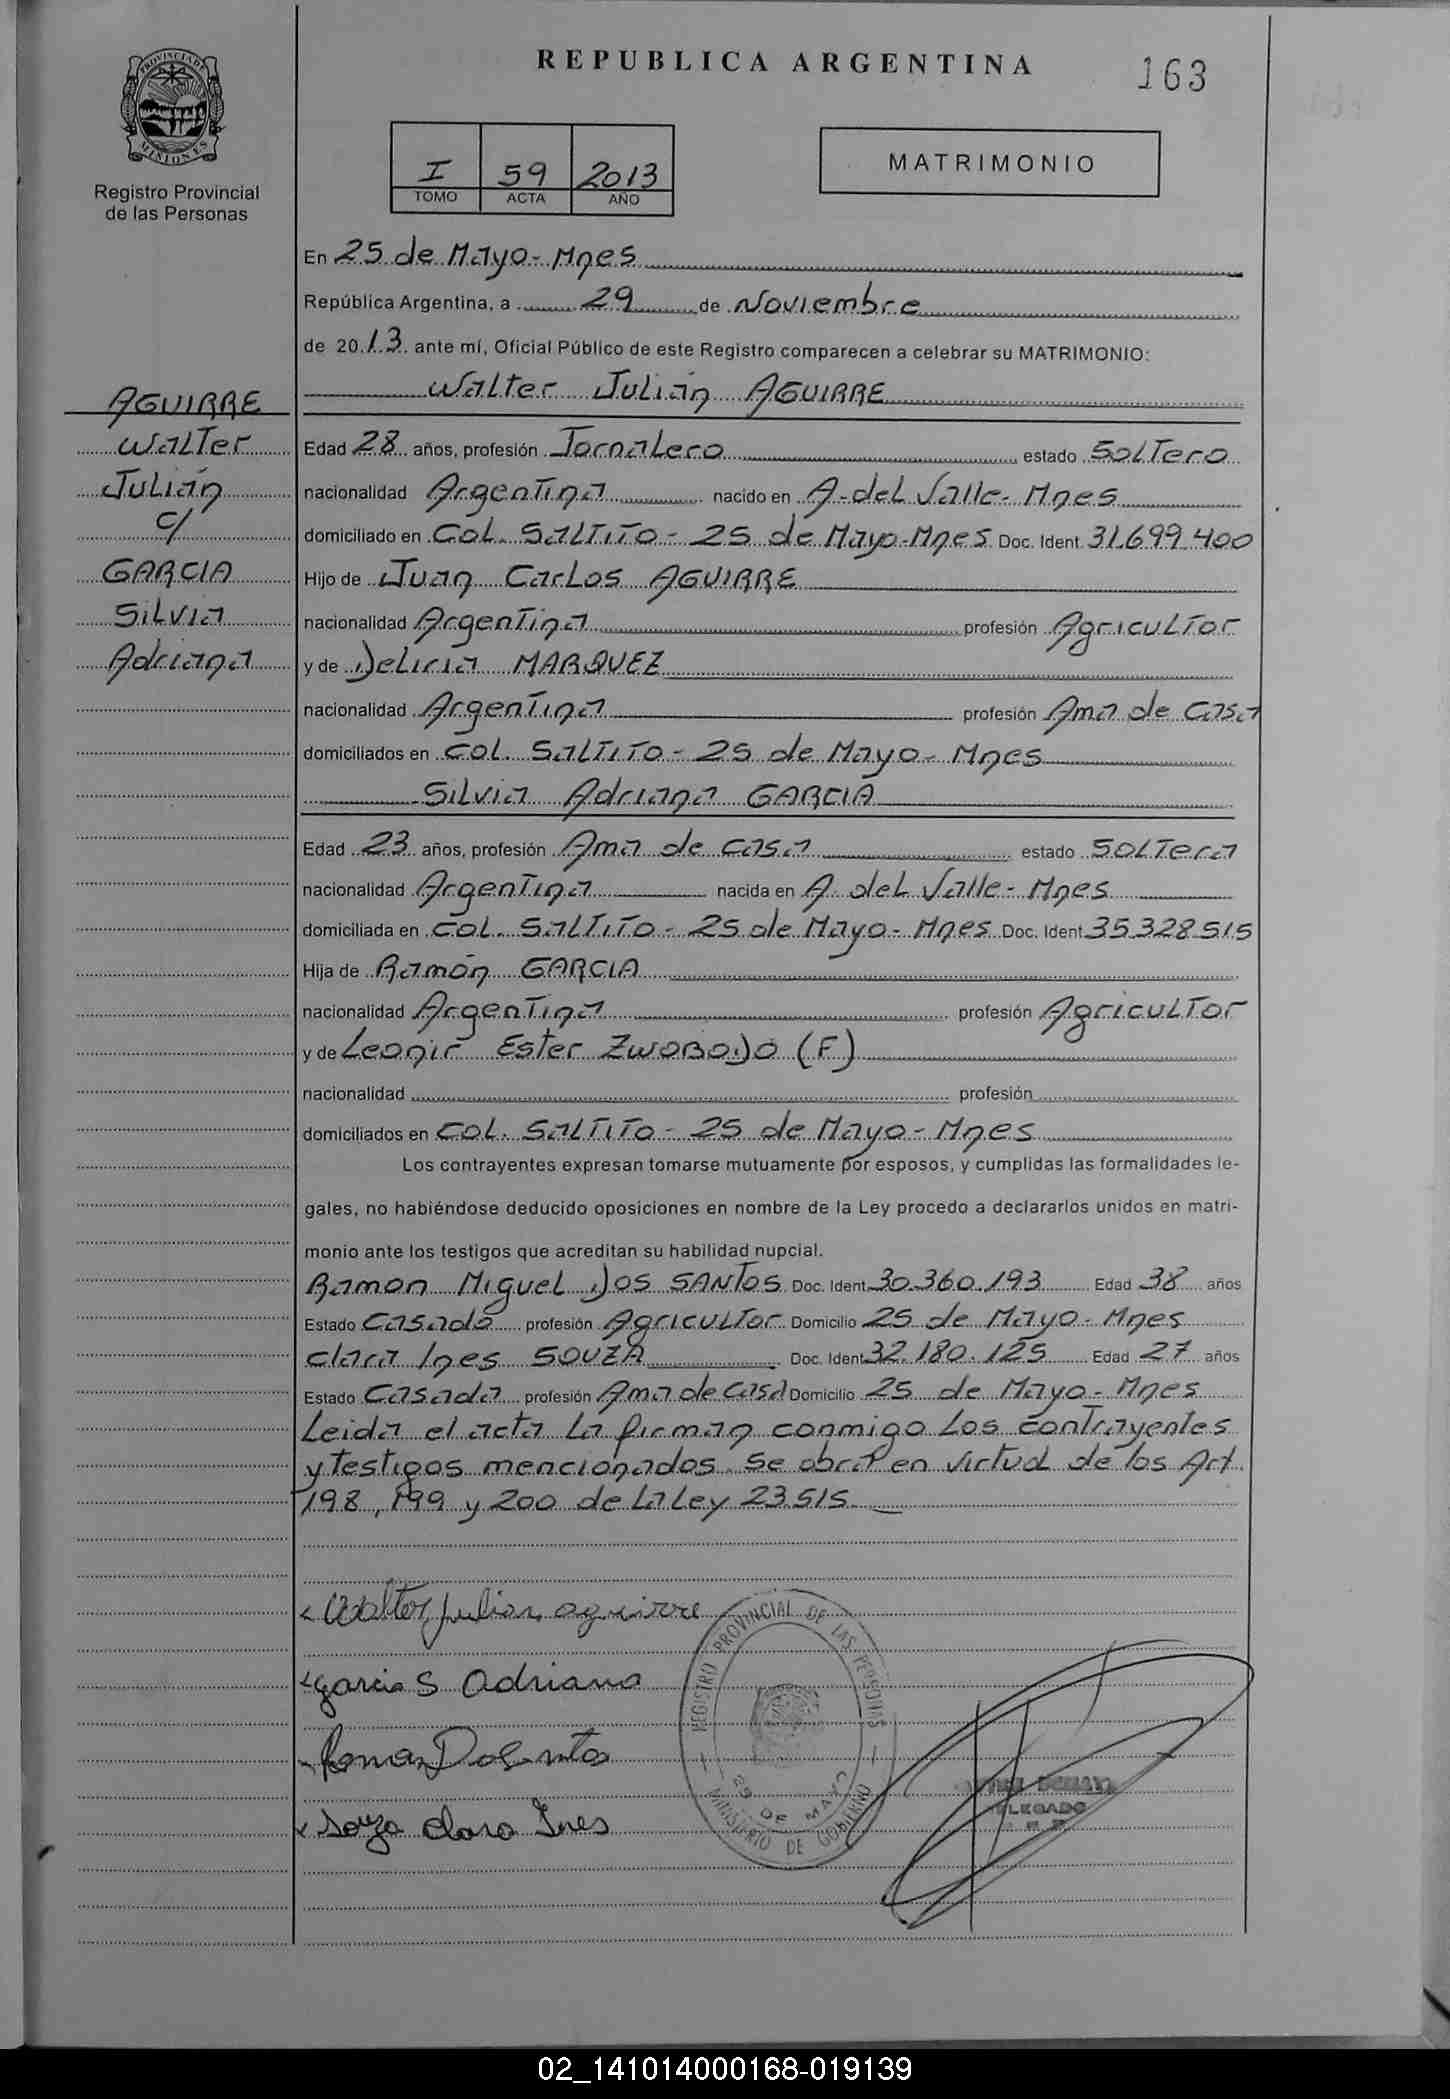 REPUBLICA ARGENTINA
163
PROVINCIA DE MISIONES
Registro Provincial
de las Personas
I 59 2013
TOMO ACTA AÑO
MATRIMONIO
En 25 de Mayo - Mnes
República Argentina, a 29 de Noviembre
de 2013 ante mí, Oficial Público de este Registro comparecen a celebrar su MATRIMONIO:
AGUIRRE
Walter
Julián
c/
GARCIA
Silvia
Adriana
Walter Julián AGUIRRE
Edad 28 años, profesión Jornalero estado Soltero
nacionalidad Argentina nacido en A. del Valle - Mnes
domiciliado en Col. Saltito - 25 de Mayo - Mnes Doc. Ident. 31.699.400
Hijo de Juan Carlos AGUIRRE
nacionalidad Argentina profesión Agricultor
y de Delicia MARQUEZ
nacionalidad Argentina profesión Ama de Casa
domiciliados en Col. Saltito - 25 de Mayo - Mnes
Silvia Adriana GARCIA
Edad 23 años, profesión Ama de casa estado Soltera
nacionalidad Argentina nacida en A. del Valle - Mnes
domiciliada en Col. Saltito - 25 de Mayo - Mnes Doc. Ident. 35.328.515
Hija de Ramón GARCIA
nacionalidad Argentina profesión Agricultor
y de Leonir Ester ZWOBODO (F)
nacionalidad profesión
domiciliados en Col. Saltito - 25 de Mayo - Mnes
Los contrayentes expresan tomarse mutuamente por esposos, y cumplidas las formalidades le-
gales, no habiéndose deducido oposiciones en nombre de la Ley procedo a declararlos unidos en matri-
monio ante los testigos que acreditan su habilidad nupcial.
Ramon Miguel DOS SANTOS Doc. Ident. 30.360.193 Edad 38 años
Estado Casado profesión Agricultor Domicilio 25 de Mayo - Mnes
Clara Ines SOUZA Doc. Ident. 32.180.125 Edad 27 años
Estado Casada profesión Ama de Casa Domicilio 25 de Mayo - Mnes
Leida el acta la firman conmigo los contrayentes
y testigos mencionados. Se obra en virtud de los Art.
198, 199 y 200 de la Ley 23.515.
Walter julian aguirre
garcia S Adriana
Souza Clara Ines
REGISTRO PROVINCIAL DE LAS PERSONAS
25 DE MAYO
MINISTERIO DE GOBIERNO
DELEGADO
02_141014000168-019139